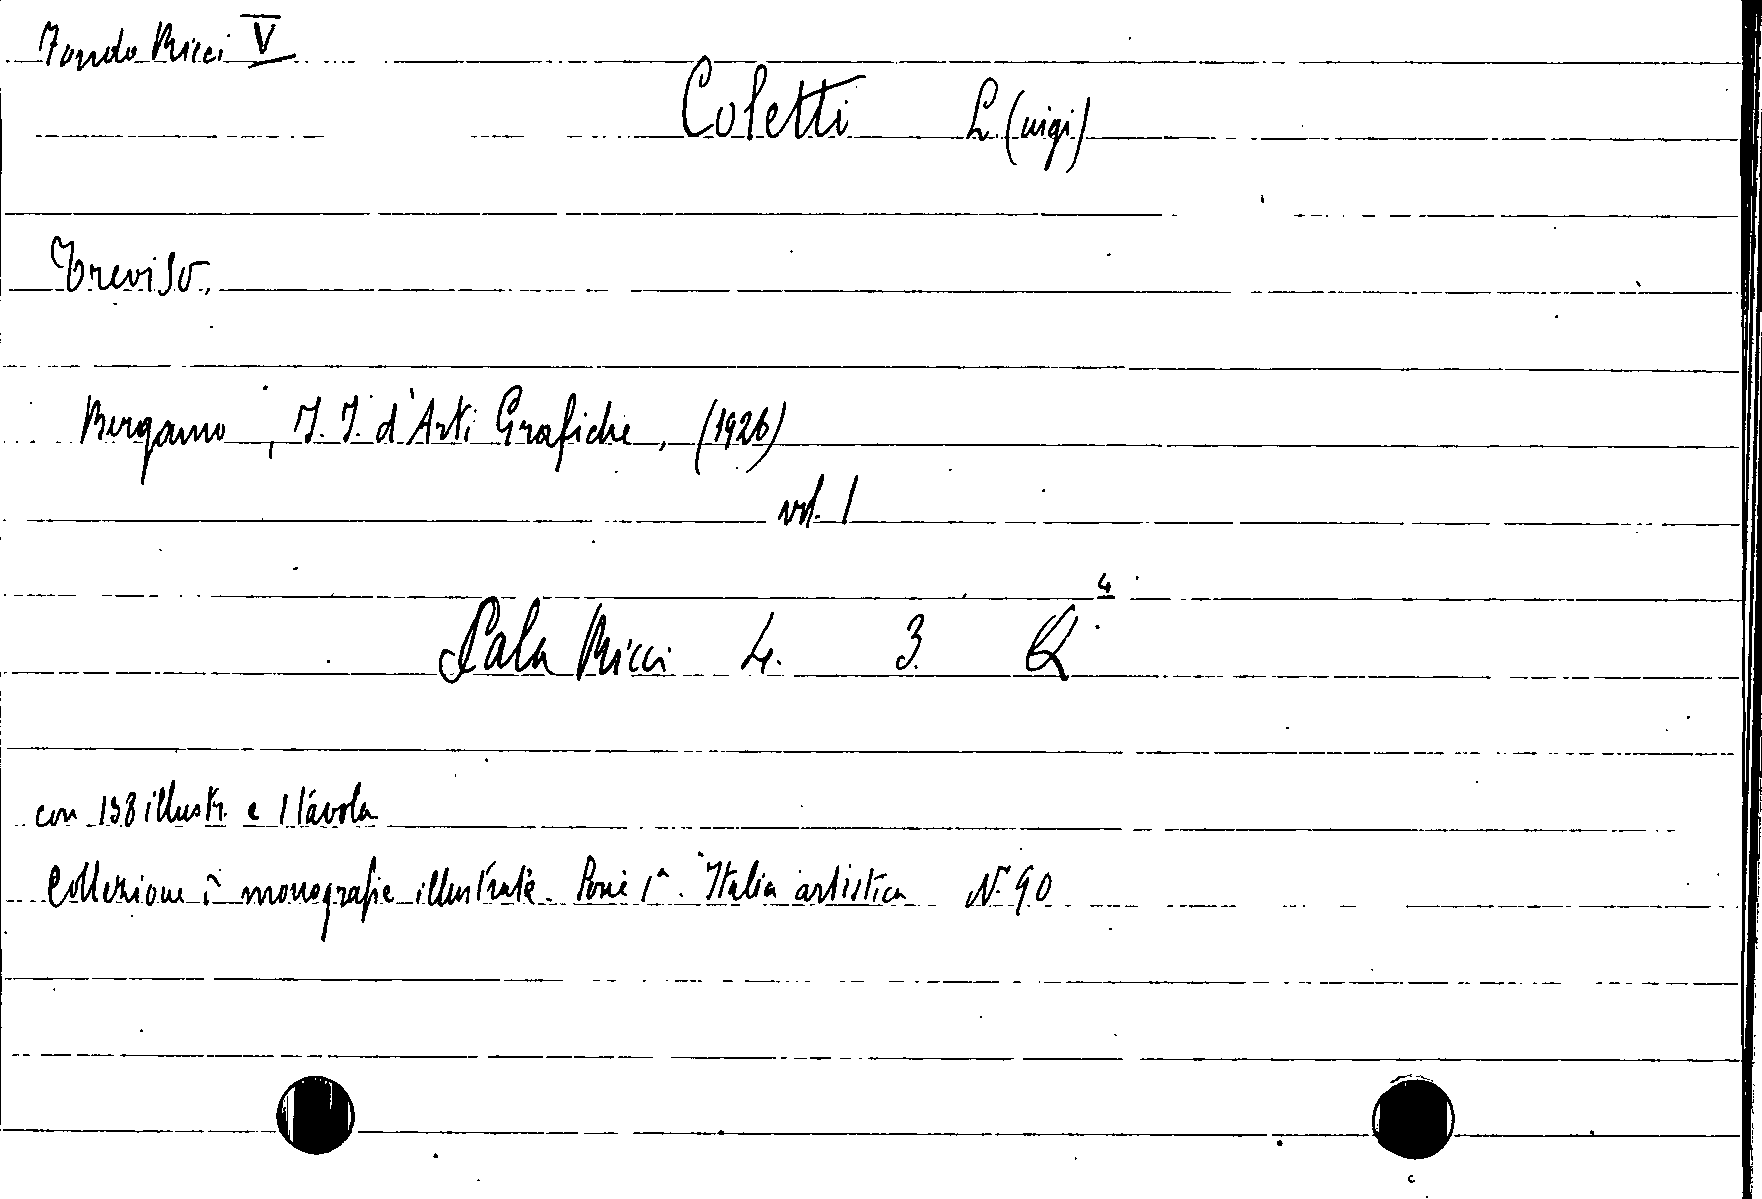 Fondo Ricci V
Coletti L.(uigi)
Treviso.
Bergamo, I. I. d'Arti Grafiche, (1926)
vol. 1
Sala Ricci 4. 3. Q 4
con 138 illustr. e 1 tavola
Collezione i monografie illustrate. Serie 1ª. Italia artistica N. 90